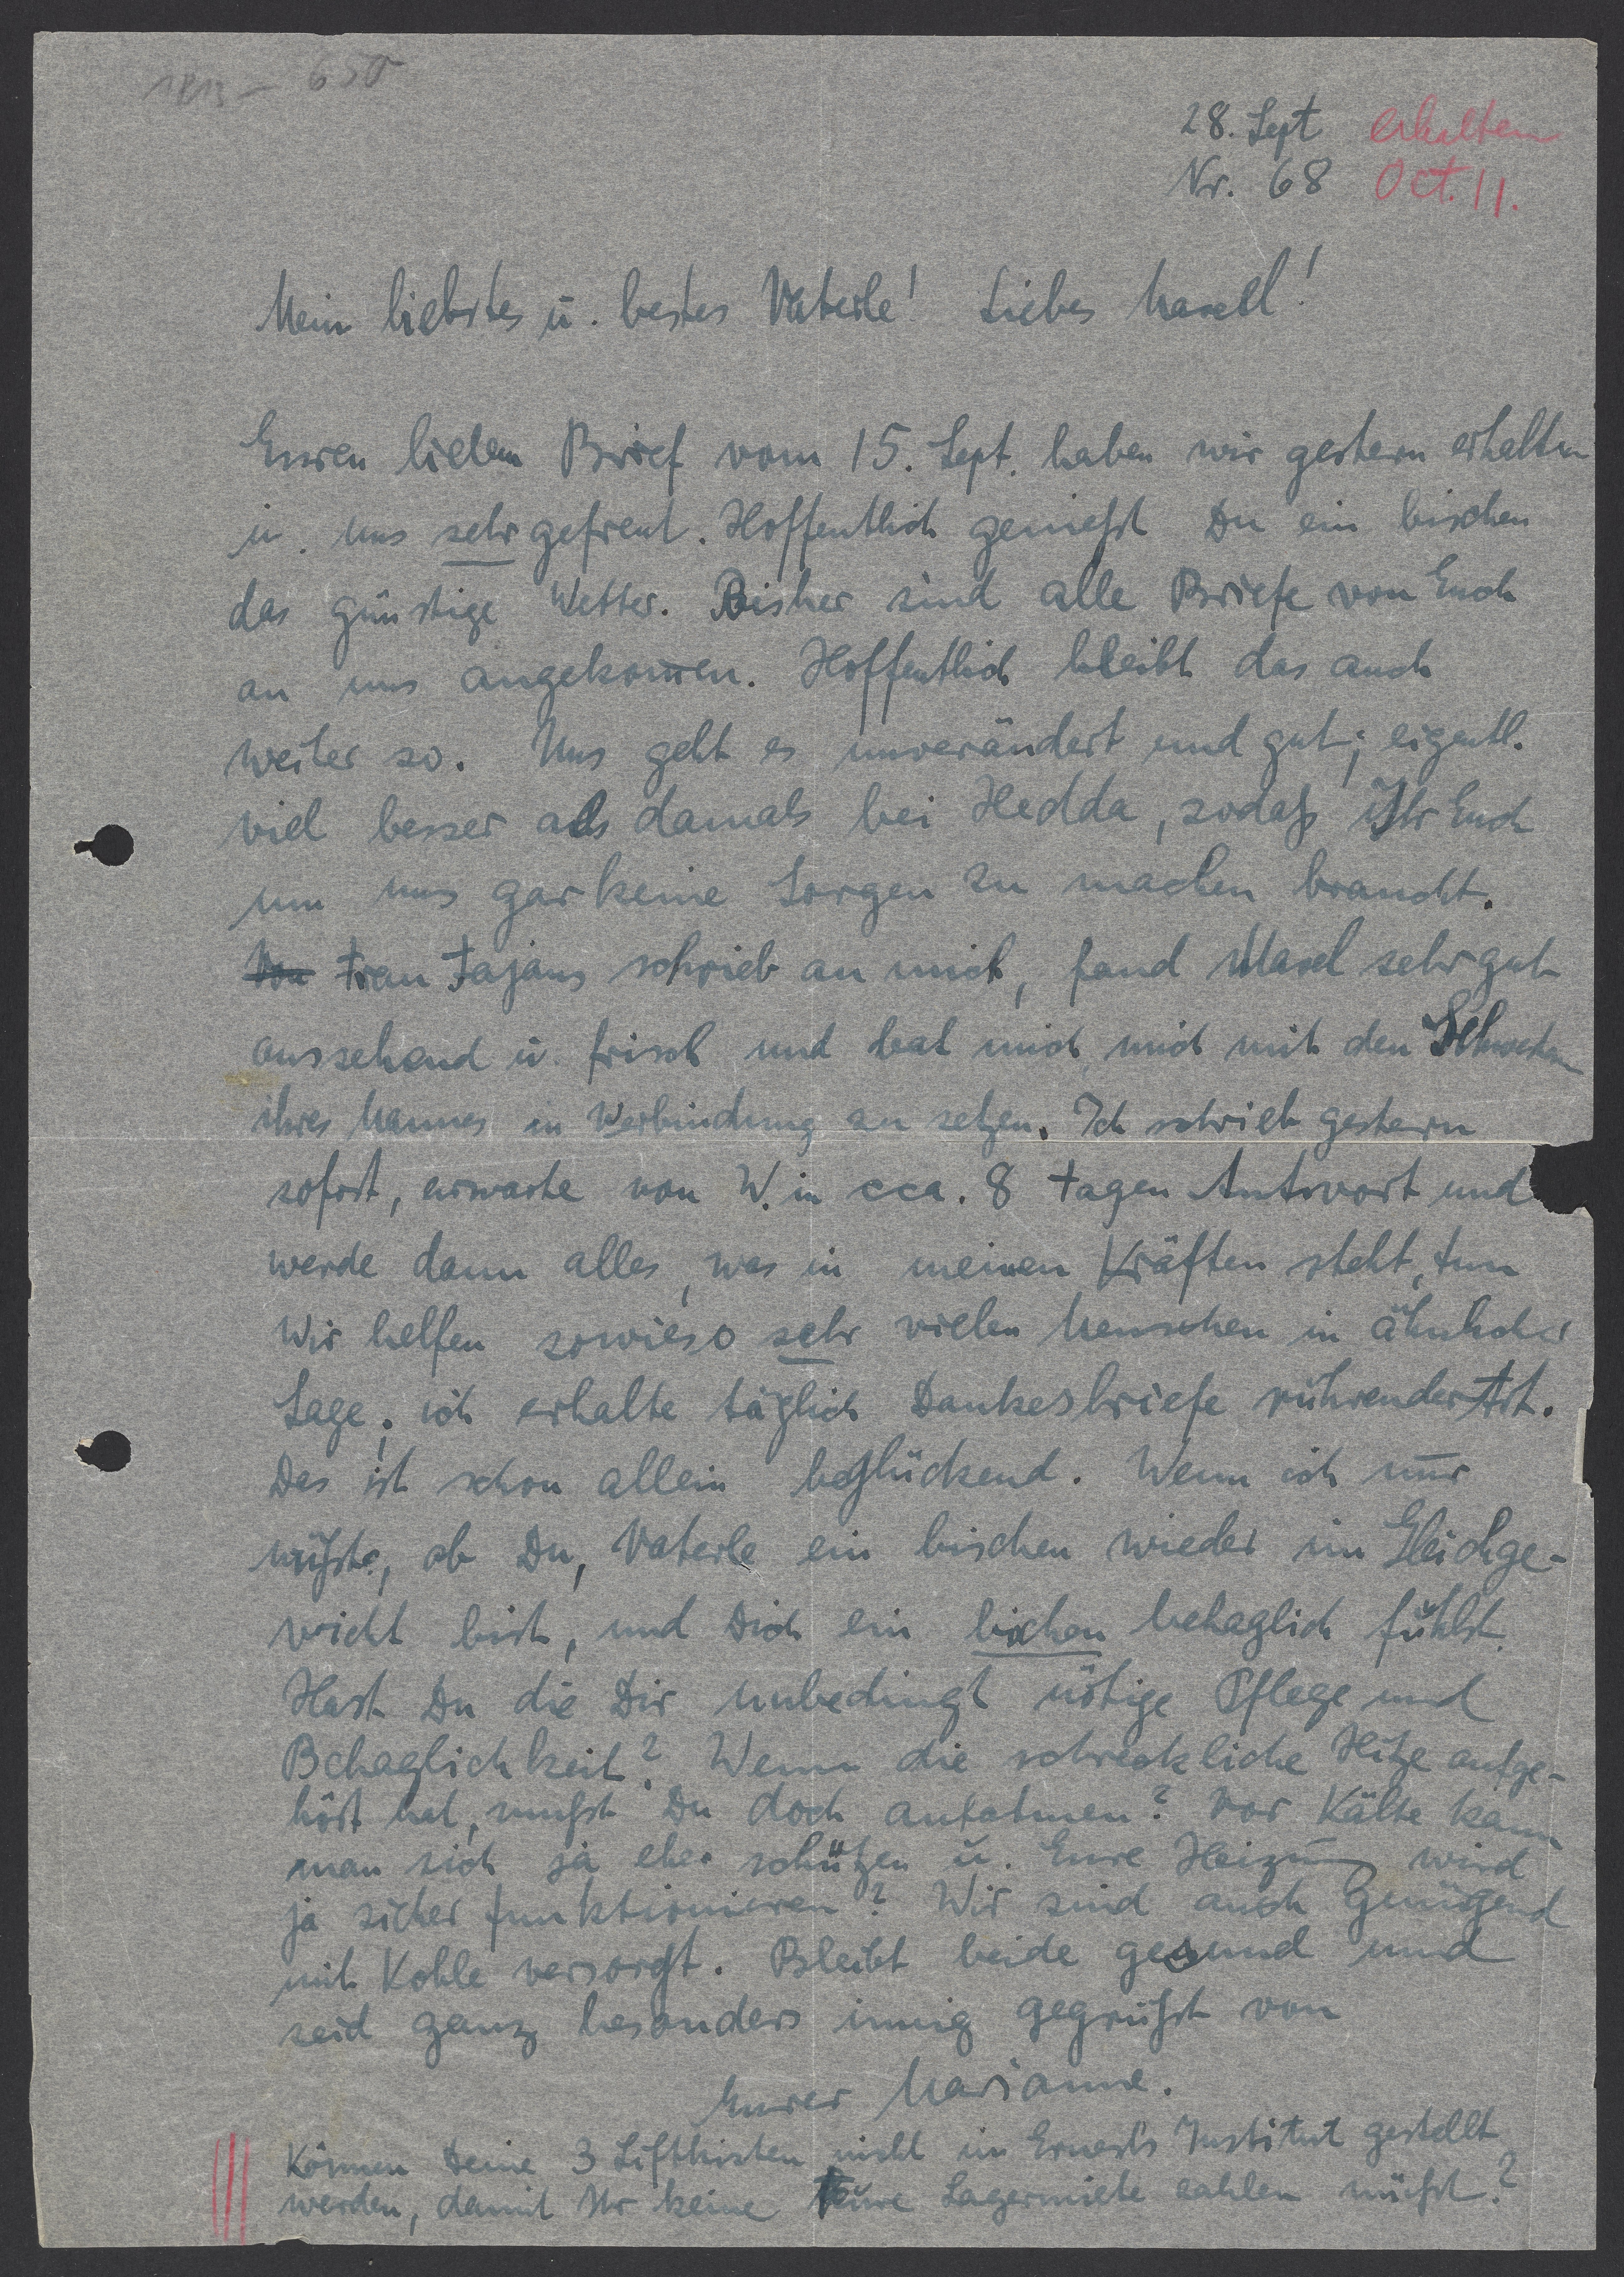 1813 - 650
28. Sept erhalten
Nr. 68 Oct. 11.
Mein liebstes u. bestes Vaterle! Liebes Maxl!
Euren lieben Brief vom 15. Sept. haben wir gestern erhalten
u. uns sehr gefreut. Hoffentlich genießt Du ein bischen
das günstige Wetter. Bisher sind alle Briefe von Euch
an uns angekommen. Hoffentlich bleibt das auch
weiter so. Uns geht es unverändert und gut; eigentl.
viel besser als damals bei Hedda, sodaß Ihr Euch
um uns gar keine Sorgen zu machen braucht.
Frau Fajans schrieb an mich, fand Maxl sehr gut
aussehend u. frisch und bat mich, mich mit den Schwestern
ihres Mannes in Verbindung zu setzen. Ich schrieb gestern
sofort, erwarte von W. in cca. 8 Tagen Antwort und
werde dann alles, was in meinen Kräften steht, tun
Wir helfen sowieso sehr vielen Menschen in ähnlicher
Lage; ich erhalte täglich Dankesbriefe rührender Art.
Das ist schon allein beglückend. Wenn ich nur
wüßte, ob Du, Vaterle ein bischen wieder im Gleichge-
wicht bist, und Dich ein bischen behaglich fühlst.
Hast Du die Dir unbedingt nötige Pflege und
Behaglichkeit? Wenn die schreckliche Hitze aufge-
hört hat, mußt Du doch aufatmen? Vor Kälte kann
man sich ja eher schützen u. Eure Heizung wird
ja sicher funktionieren? Wir sind auch genügend
mit Kohle versorgt. Bleibt beide gesund und
seid ganz besonders innig gegrüßt von
Eurer Marianne.
Können Deine 3 Liftkisten nicht im Ernest's Institut gestellt
werden, damit Ihr keine teure Lagermiete zahlen müßt?